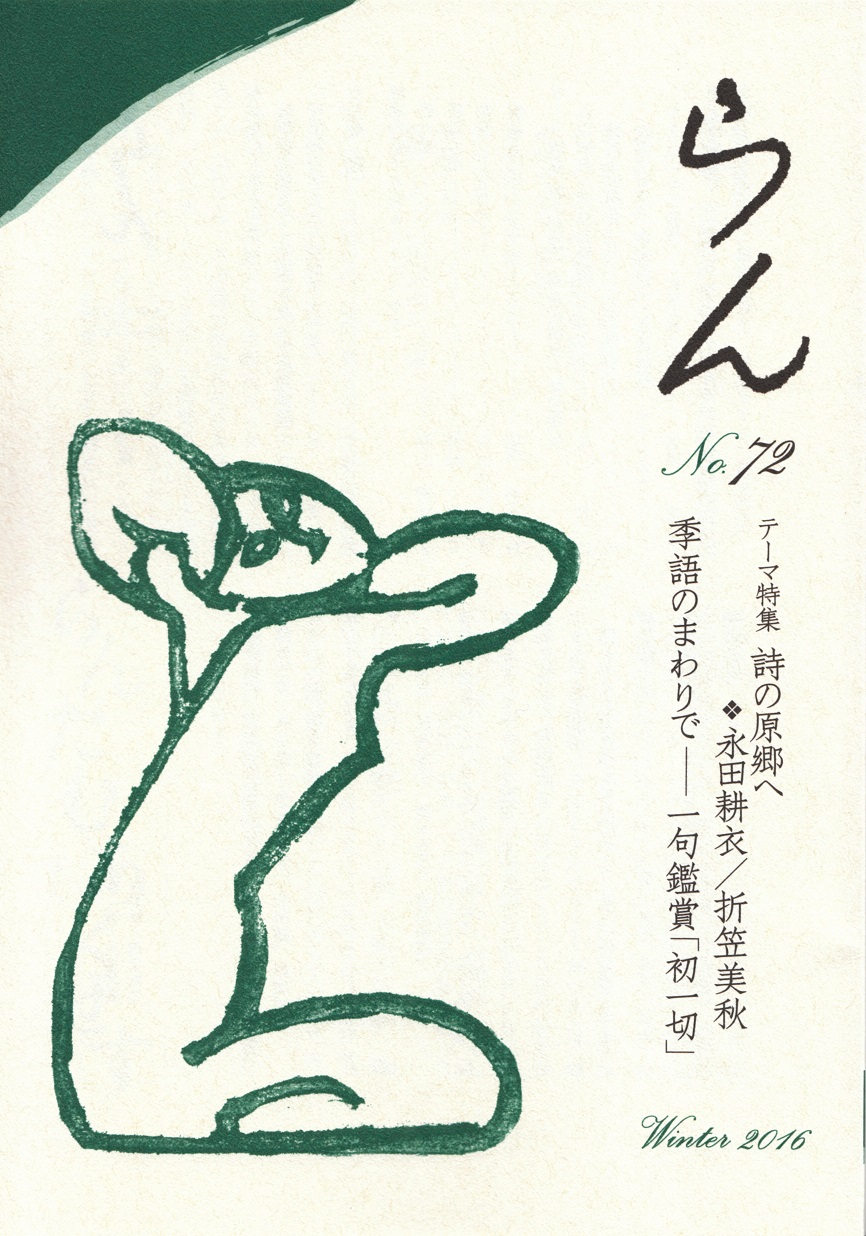 らん
No. 72
テーマ特集 詩の原郷へ
❖永田耕衣／折笠美秋
季語のまわりで──一句鑑賞「初一切」
Winter 2016